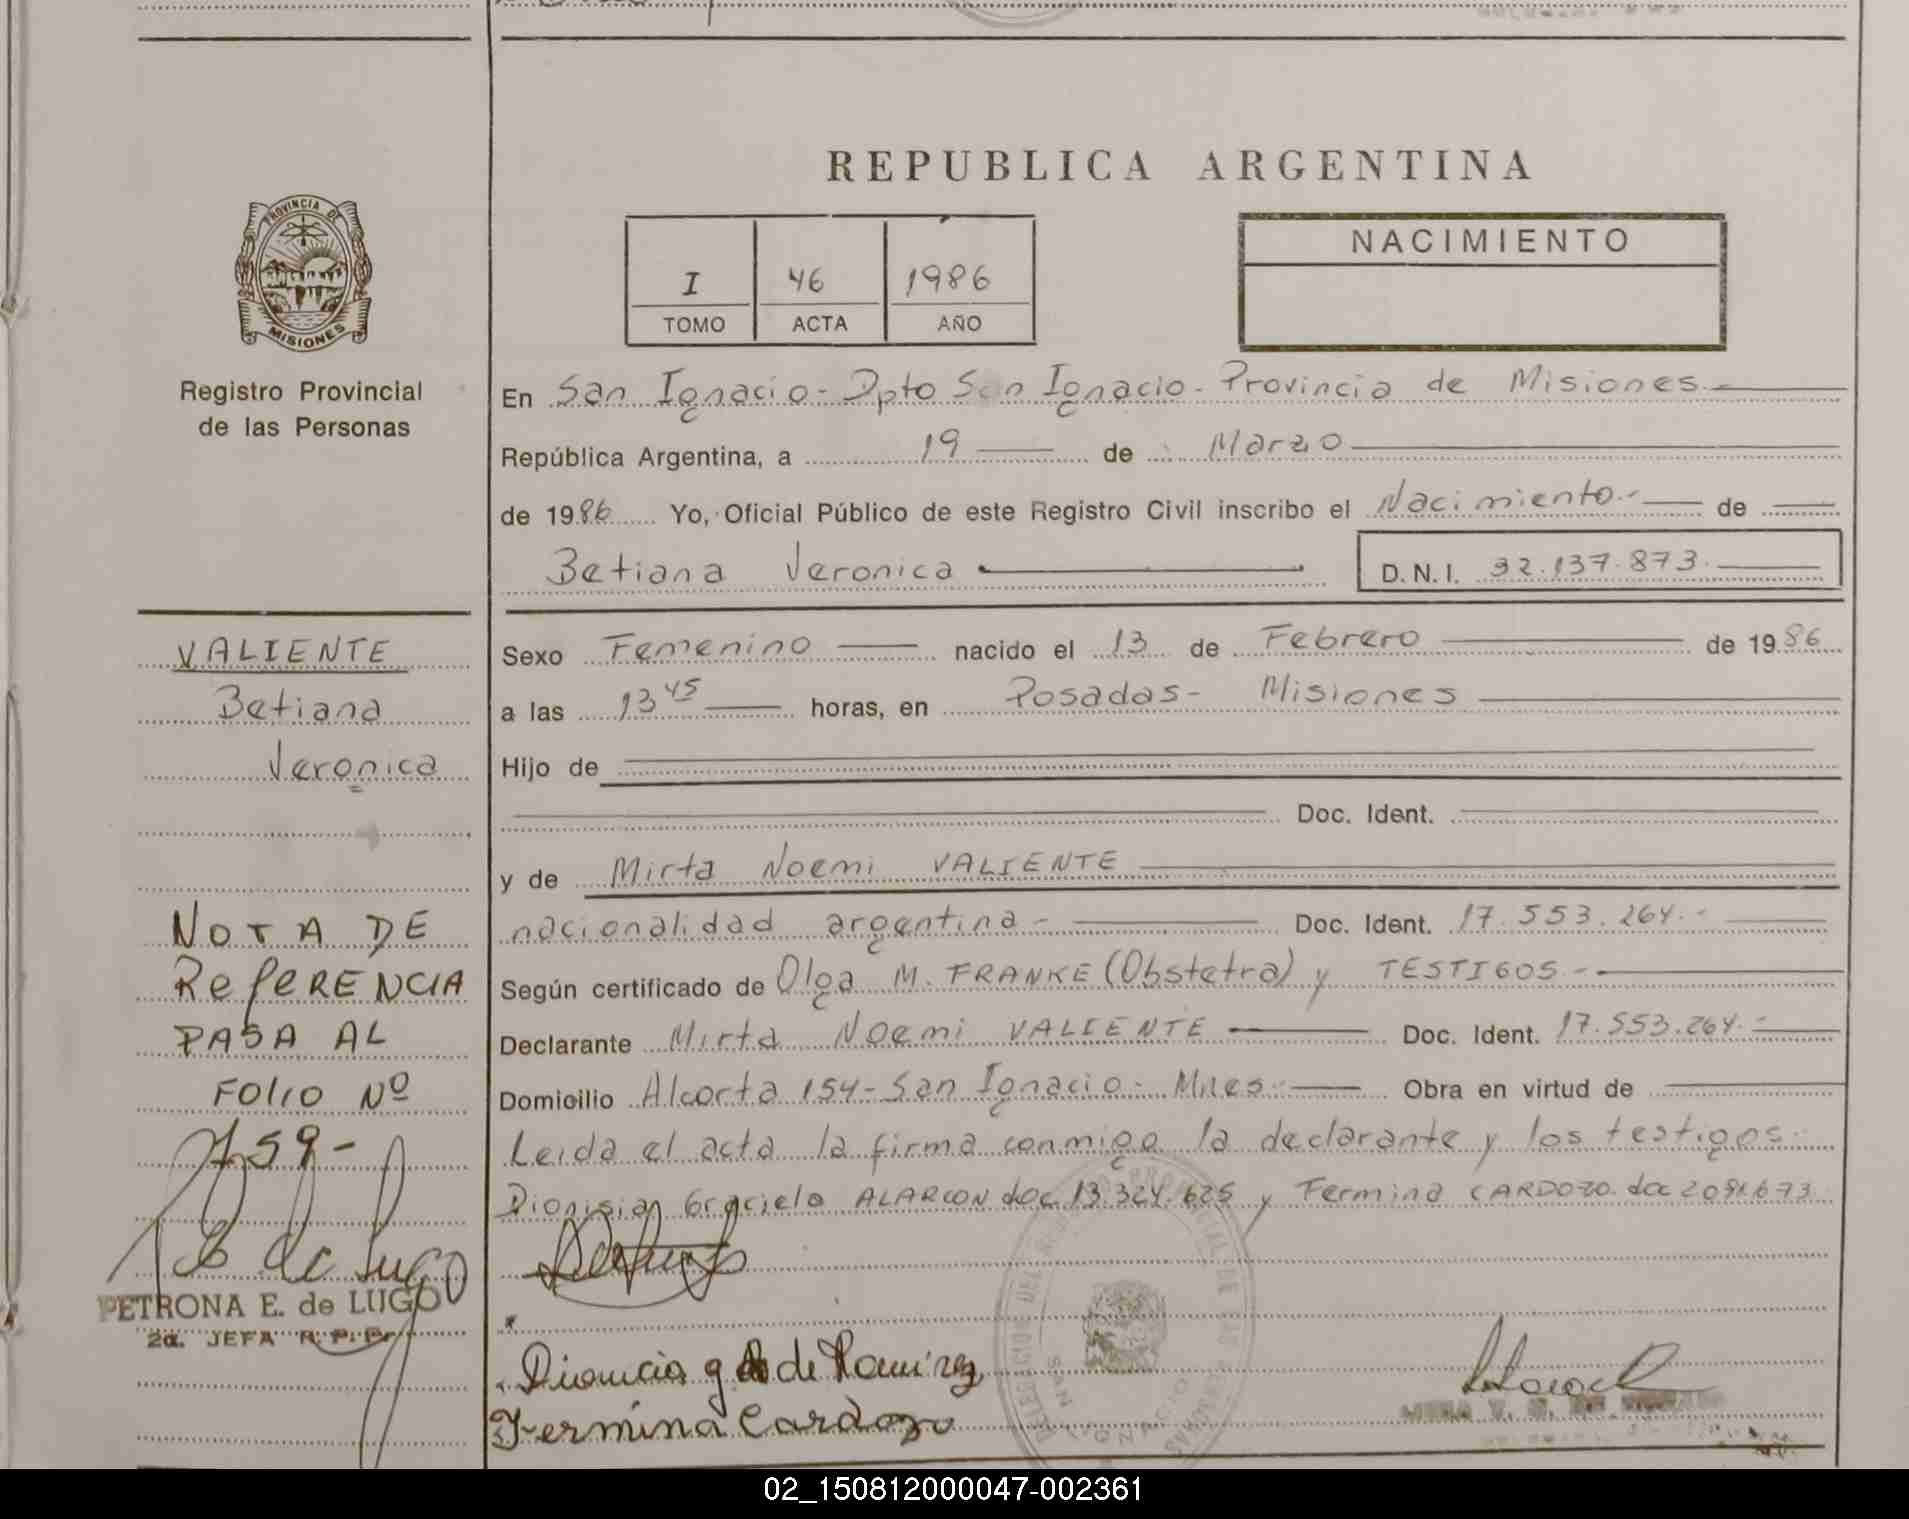 REPUBLICA ARGENTINA
PROVINCIA DE
MISIONES
Registro Provincial
de las Personas
I 46 1986
TOMO ACTA AÑO
NACIMIENTO
En San Ignacio - Dpto San Ignacio - Provincia de Misiones
República Argentina, a 19 de Marzo
de 1986 Yo, Oficial Público de este Registro Civil inscribo el Nacimiento de
Betiana Veronica D.N.I. 32.137.873.
VALIENTE
Betiana
Veronica
Sexo Femenino nacido el 13 de Febrero de 1986
a las 13 45 horas, en Posadas - Misiones
Hijo de
Doc. Ident.
y de Mirta Noemi VALIENTE
nacionalidad argentina - Doc. Ident. 17.553.264.-
Según certificado de Olga M. FRANKE (Obstetra) y TESTIGOS.-
Declarante Mirta Noemi VALIENTE Doc. Ident. 17.553.264.-
Domicilio Alcorta 154 - San Ignacio - Mnes.- Obra en virtud de
Leida el acta la firma conmigo la declarante y los testigos
Dionisia Graciela ALARCON doc 13.324.625 y Fermina CARDOZO doc 2091673
NOTA DE
ReFERENCIA
PASA AL
FOLIO Nº
159-
de Lugo
PETRONA E. de LUGO
2a. JEFA R. P. P.
de Ramirez
Fermina Cardozo
SAN IGNACIO
02_150812000047-002361